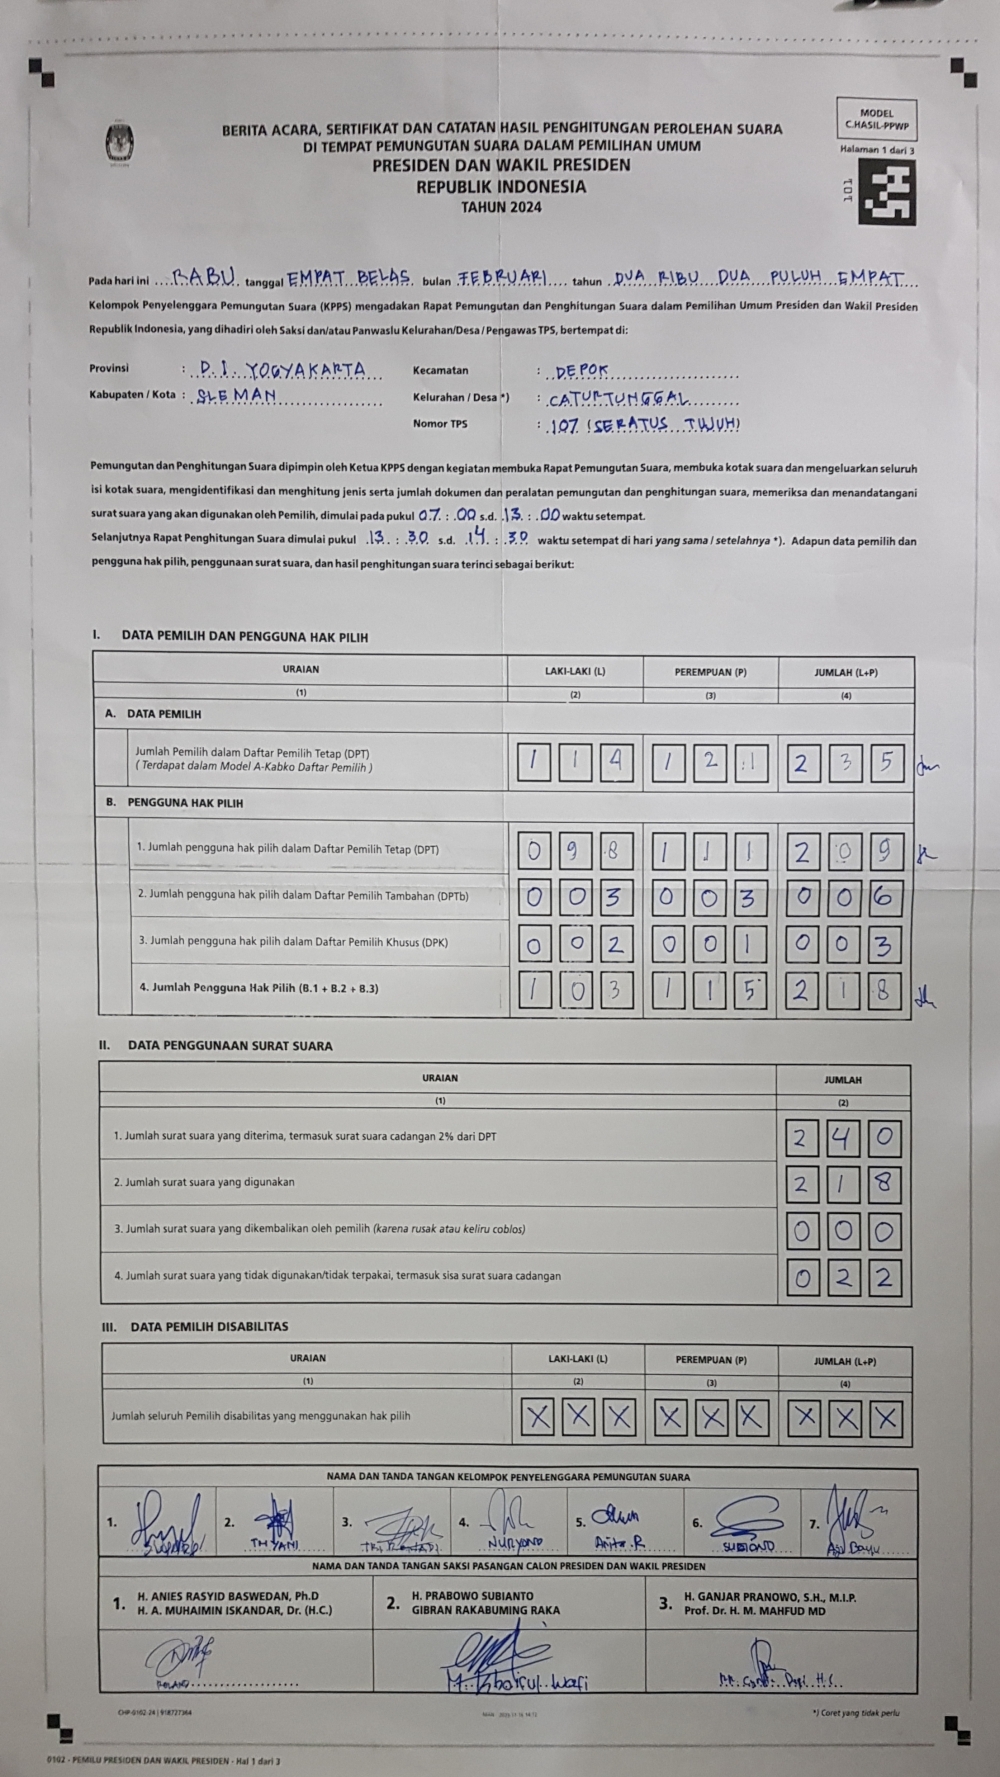 MODEL
C.HASIL-PPWP
Halaman 1 dari 3
101
BERITA ACARA, SERTIFIKAT DAN CATATAN HASIL PENGHITUNGAN PEROLEHAN SUARA
DI TEMPAT PEMUNGUTAN SUARA DALAM PEMILIHAN UMUM
PRESIDEN DAN WAKIL PRESIDEN
REPUBLIK INDONESIA
TAHUN 2024
Pada hari ini RABU tanggal EMPAT BELAS bulan FEBRUARI tahun DUA RIBU DUA PULUH EMPAT
Kelompok Penyelenggara Pemungutan Suara (KPPS) mengadakan Rapat Pemungutan dan Penghitungan Suara dalam Pemilihan Umum Presiden dan Wakil Presiden
Republik Indonesia, yang dihadiri oleh Saksi dan/atau Panwaslu Kelurahan/Desa / Pengawas TPS, bertempat di:
Provinsi : D.I. YOGYAKARTA Kecamatan : DEPOK
Kabupaten / Kota : SLEMAN Kelurahan / Desa *) : CATURTUNGGAL
Nomor TPS : 107 (SERATUS TUJUH)
Pemungutan dan Penghitungan Suara dipimpin oleh Ketua KPPS dengan kegiatan membuka Rapat Pemungutan Suara, membuka kotak suara dan mengeluarkan seluruh
isi kotak suara, mengidentifikasi dan menghitung jenis serta jumlah dokumen dan peralatan pemungutan dan penghitungan suara, memeriksa dan menandatangani
surat suara yang akan digunakan oleh Pemilih, dimulai pada pukul 07 : 00 s.d. 13 : 00 waktu setempat.
Selanjutnya Rapat Penghitungan Suara dimulai pukul 13 : 30 s.d. 14 : 30 waktu setempat di hari yang sama / setelahnya *). Adapun data pemilih dan
pengguna hak pilih, penggunaan surat suara, dan hasil penghitungan suara terinci sebagai berikut:
I. DATA PEMILIH DAN PENGGUNA HAK PILIH
URAIAN LAKI-LAKI (L) PEREMPUAN (P) JUMLAH (L+P)
(1) (2) (3) (4)
A. DATA PEMILIH
Jumlah Pemilih dalam Daftar Pemilih Tetap (DPT) 1 1 4 1 2 1 2 3 5
( Terdapat dalam Model A-Kabko Daftar Pemilih )
B. PENGGUNA HAK PILIH
1. Jumlah pengguna hak pilih dalam Daftar Pemilih Tetap (DPT) 0 9 8 1 1 1 2 0 9
2. Jumlah pengguna hak pilih dalam Daftar Pemilih Tambahan (DPTb) 0 0 3 0 0 3 0 0 6
3. Jumlah pengguna hak pilih dalam Daftar Pemilih Khusus (DPK) 0 0 2 0 0 1 0 0 3
4. Jumlah Pengguna Hak Pilih (B.1 + B.2 + B.3) 1 0 3 1 1 5 2 1 8
II. DATA PENGGUNAAN SURAT SUARA
URAIAN JUMLAH
(1) (2)
1. Jumlah surat suara yang diterima, termasuk surat suara cadangan 2% dari DPT 2 4 0
2. Jumlah surat suara yang digunakan 2 1 8
3. Jumlah surat suara yang dikembalikan oleh pemilih (karena rusak atau keliru coblos) 0 0 0
4. Jumlah surat suara yang tidak digunakan/tidak terpakai, termasuk sisa surat suara cadangan 0 2 2
III. DATA PEMILIH DISABILITAS
URAIAN LAKI-LAKI (L) PEREMPUAN (P) JUMLAH (L+P)
(1) (2) (3) (4)
Jumlah seluruh Pemilih disabilitas yang menggunakan hak pilih X X X X X X X X X
NAMA DAN TANDA TANGAN KELOMPOK PENYELENGGARA PEMUNGUTAN SUARA
1. 2. 3. 4. 5. 6. 7.
TH YANI NURYONO Anita.R SUBIONO Aji Bayu
NAMA DAN TANDA TANGAN SAKSI PASANGAN CALON PRESIDEN DAN WAKIL PRESIDEN
1. H. ANIES RASYID BASWEDAN, Ph.D
H. A. MUHAIMIN ISKANDAR, Dr. (H.C.)
2. H. PRABOWO SUBIANTO
GIBRAN RAKABUMING RAKA
3. H. GANJAR PRANOWO, S.H., M.I.P.
Prof. Dr. H. M. MAHFUD MD
M. Khoirul Wafi
CHP-0102-24 | 918727364
*) Coret yang tidak perlu
0102 - PEMILU PRESIDEN DAN WAKIL PRESIDEN - Hal 1 dari 3